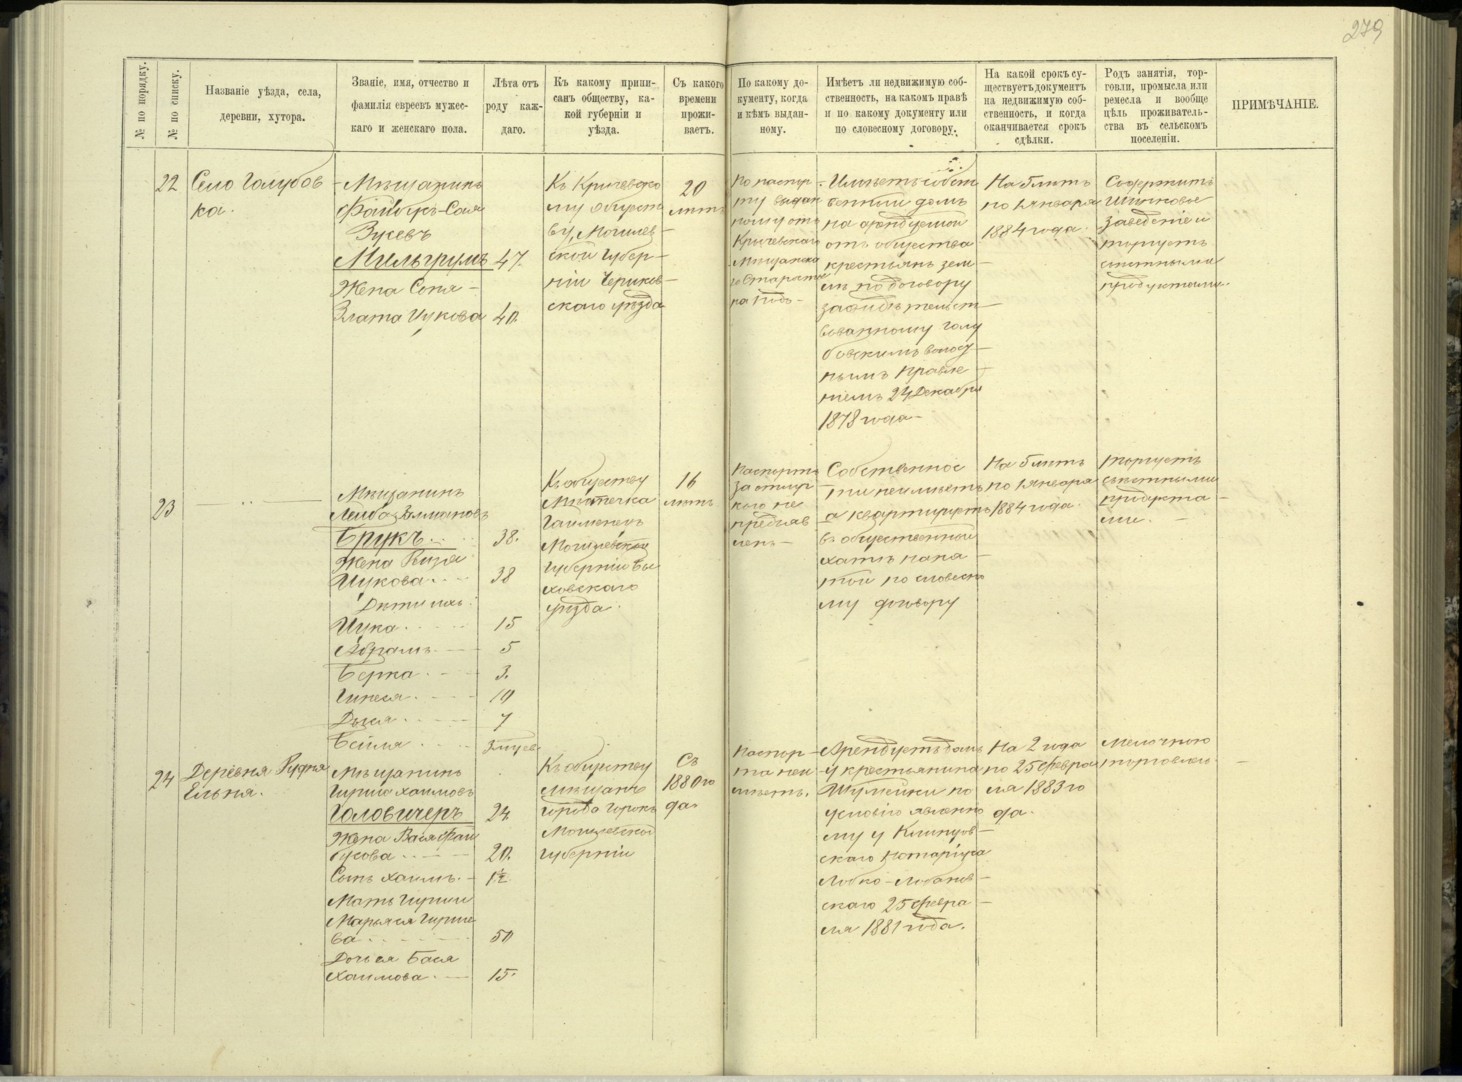 279
№ по порядку.
№ по списку.
Названіе уѣзда, села,
деревни, хутора.
Званіе, имя, отчество и
фамилія евреевъ мужес-
каго и женскаго пола.
Лѣта отъ
роду каж-
даго.
Къ какому припи-
санъ обществу, ка-
кой губерніи и
уѣзда.
Съ какого
времени
прожи-
ваетъ.
По какому до-
кументу, когда
и кѣмъ выдан-
ному.
Имѣетъ ли недвижимую соб-
ственность, на какомъ правѣ
и по какому документу или
по словесному договору.
На какой срокъ су-
ществуетъ документъ
на недвижимую соб-
ственность, и когда
оканчивается срокъ
сдѣлки.
Родъ занятія, тор-
говли, промысла или
ремесла и вообще
цѣль проживатель-
ства въ сельскомъ
поселеніи.
ПРИМѢЧАНІЕ.
22
Село Голубов
ка.
Мѣщанинъ
Зусевъ
Мильгрумъ 47.
Жена Соня-
Злата Ицкова 40.
Къ Кричевско
му обществ
ву, Могилев-
ской Губер-
ніи Чериков-
скаго уѣзда
20
лѣтъ
По паспор
ту выдан
ному отъ
Кричевскаго
Мѣщанска
го Старосты
на годъ-
Имѣетъ собст
венный домъ
на арендуемой
отъ общества
крестьянъ зем-
лѣ по договору
засвидѣтельст
вованному Голу
бовскимъ волос
нымъ Правле-
ніемъ 24 Декабря
1878 года-
На 6 лѣтъ
по 1 января
1884 года.
Содержитъ
Шинковое
заведеніе и
торгуетъ
съѣстными
продуктами.
23
Мѣщанинъ
Брукъ 38.
Жена Ризя
Ицкова 38
Дѣти ихъ:
Ицка 15
Абрамъ 5
Берка 3.
10
7
Бейля
Къ обществу
Мѣстечка
Могилевской
Губерніи Бы
ховскаго
уѣзда.
16
лѣтъ
Паспорта
за отлуч
кого не
предъяв
ленъ-
Собственнос
ти неимѣетъ
а квартируетъ
въ общественной
хатѣ наня-
той по словесно
му договору
На 6 лѣтъ
по 1 января
1884 года.
торгуетъ
съѣстными
продукта-
ми.
24
Деревня Рудня
Ельня.
Мѣщанинъ
Гирша Хаимовъ
Головичеръ 24
Жена Вася Фай
бусова 20.
Сынъ Хаимъ 1½
Мать Гирши
Марьяся Гирше
ва 50
Дочь ея Бася
Хаимова 15.
Къ обществу
мѣщанъ
города Горокъ
Могилевской
губерніи
Съ
1880 го
да
Паспор-
та неи
мѣетъ.
Арендуетъ домъ
у крестьянина
Шулейки по
условію явленно
му у Клинцов-
скаго нотаріуса
Лобко-Лобанов-
скаго 25 февра-
ля 1881 года.
На 2 года
по 25 февра
ля 1883 го
да.
Мелочною
торговлею